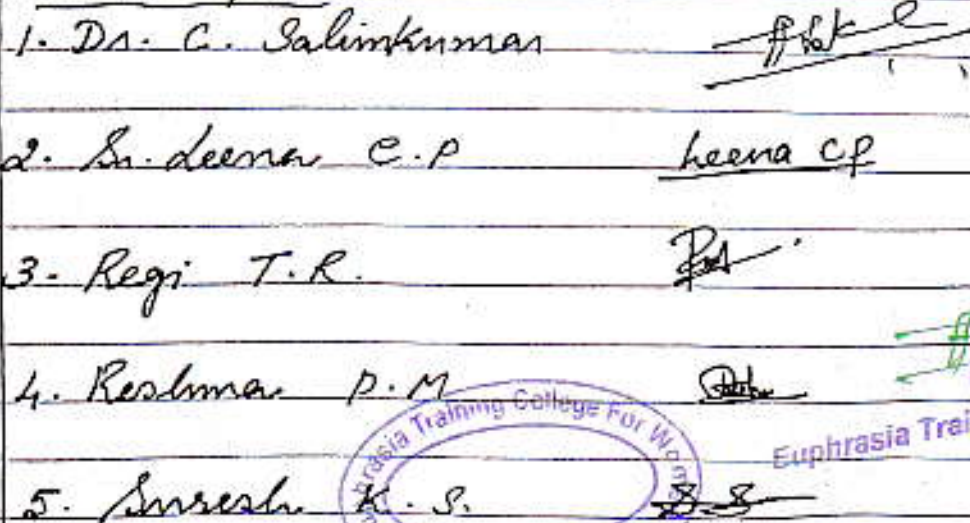 1. Dr. C. Salimkumar
2. Sr. Leena C.P Leena CP
3. Regi T.R.
4. Reshma P.M
5. Suresh K.S. S.S
Euphrasia Training College For Wom
Euphrasia Trai